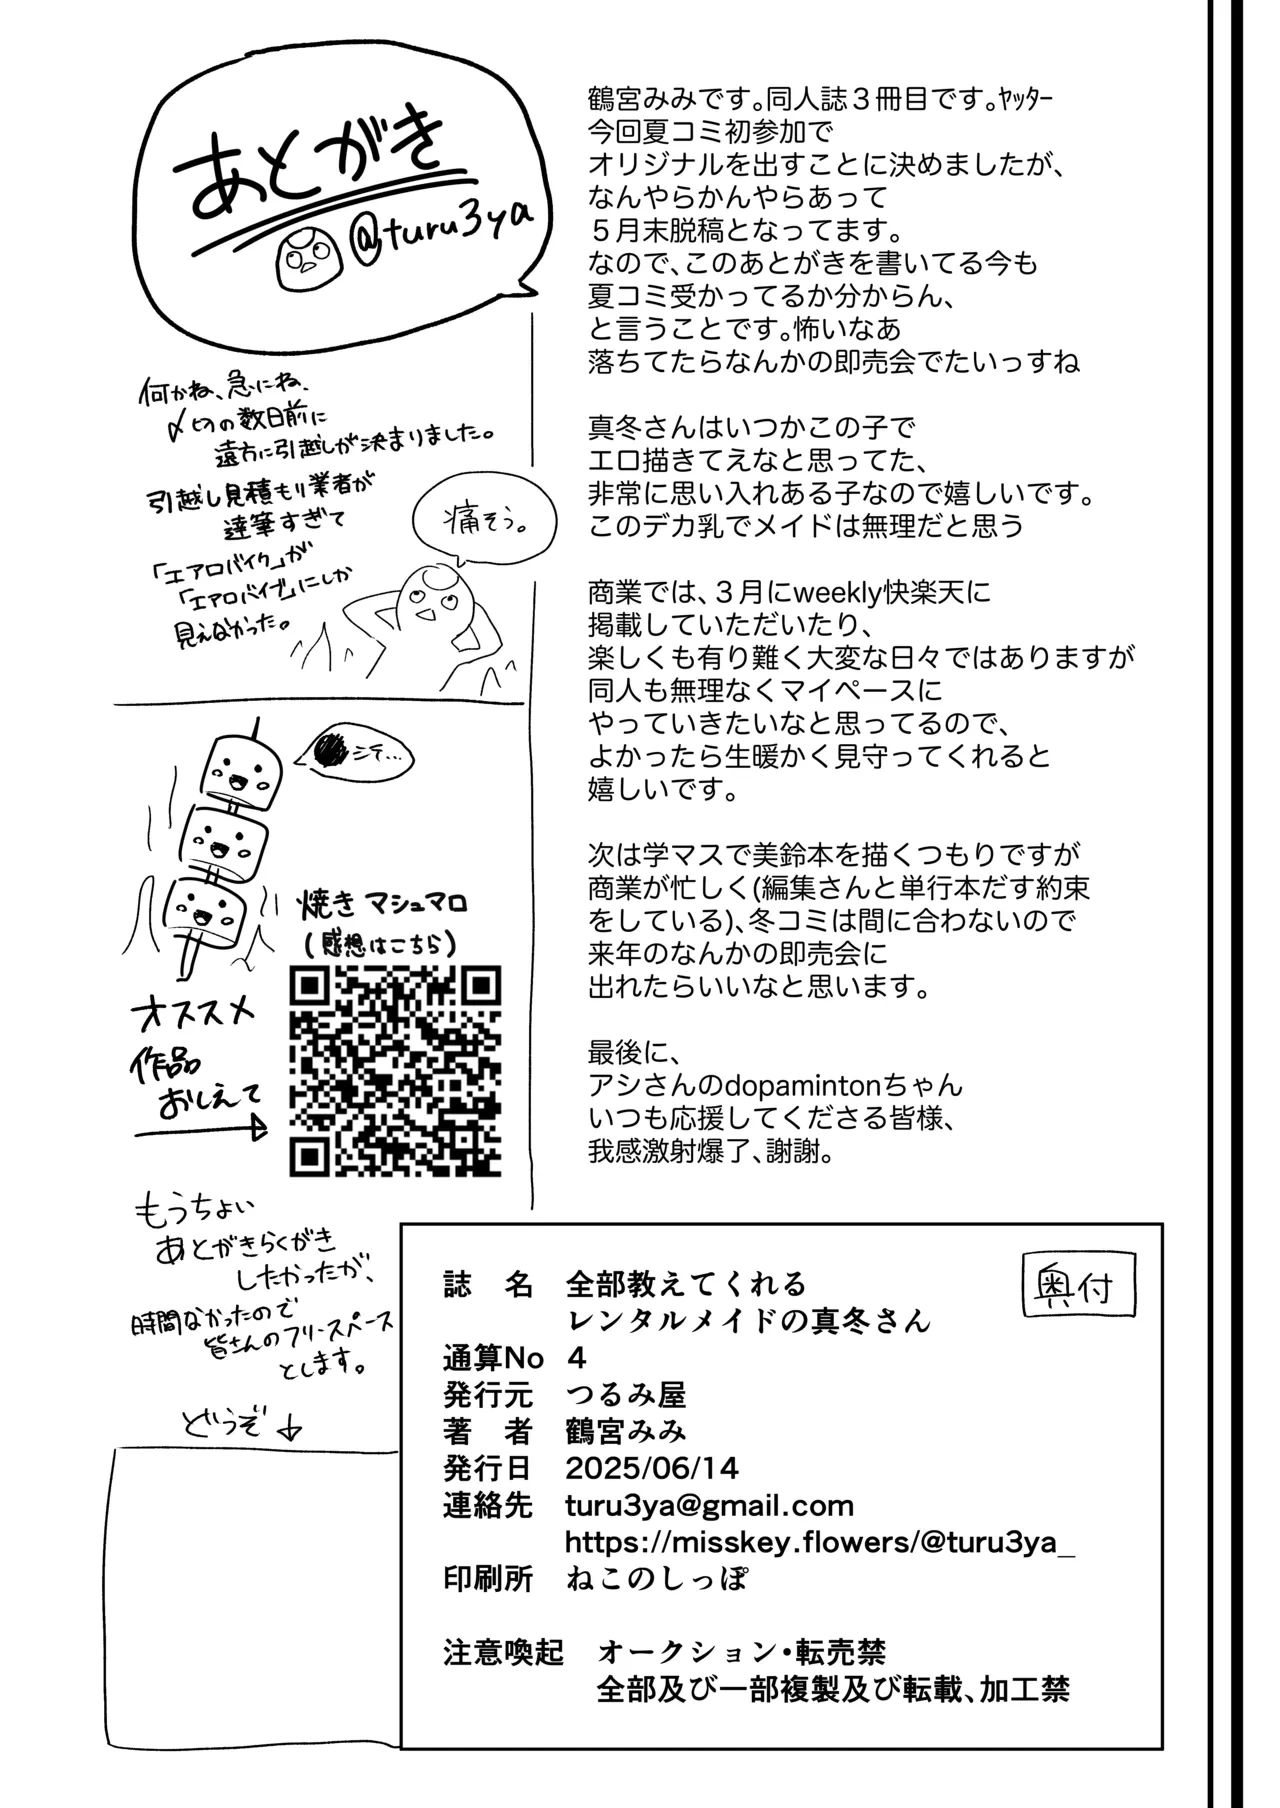 あとがき
@turu3ya
何かね、急にね、
〆切の数日前に
遠方に引越しが決まりました。
引越し見積もり業者が
達筆すぎて
「エアロバイク」が
「エアロバイブ」にしか
見えなかった。
痛そう。
シテ…
焼き マシュマロ
(感想はこちら)
オススメ
作品
おしえて
もうちょい
あとがきらくがき
したかったが、
時間なかったので
皆さんのフリースペース
とします。
どうぞ↓
鶴宮みみです。同人誌３冊目です。ﾔｯﾀｰ
今回夏コミ初参加で
オリジナルを出すことに決めましたが、
なんやらかんやらあって
５月末脱稿となってます。
なので、このあとがきを書いてる今も
夏コミ受かってるか分からん、
と言うことです。怖いなあ
落ちてたらなんかの即売会でたいっすね
真冬さんはいつかこの子で
エロ描きてえなと思ってた、
非常に思い入れある子なので嬉しいです。
このデカ乳でメイドは無理だと思う
商業では、３月にweekly快楽天に
掲載していただいたり、
楽しくも有り難く大変な日々ではありますが
同人も無理なくマイペースに
やっていきたいなと思ってるので、
よかったら生暖かく見守ってくれると
嬉しいです。
次は学マスで美鈴本を描くつもりですが
商業が忙しく(編集さんと単行本だす約束
をしている)、冬コミは間に合わないので
来年のなんかの即売会に
出れたらいいなと思います。
最後に、
アシさんのdopamintonちゃん
いつも応援してくださる皆様、
我感激射爆了、謝謝。
奥付
誌　名　全部教えてくれる
レンタルメイドの真冬さん
通算No　4
発行元　つるみ屋
著　者　鶴宮みみ
発行日　2025/06/14
連絡先　turu3ya@gmail.com
https://misskey.flowers/@turu3ya_
印刷所　ねこのしっぽ
注意喚起　オークション・転売禁
全部及び一部複製及び転載、加工禁